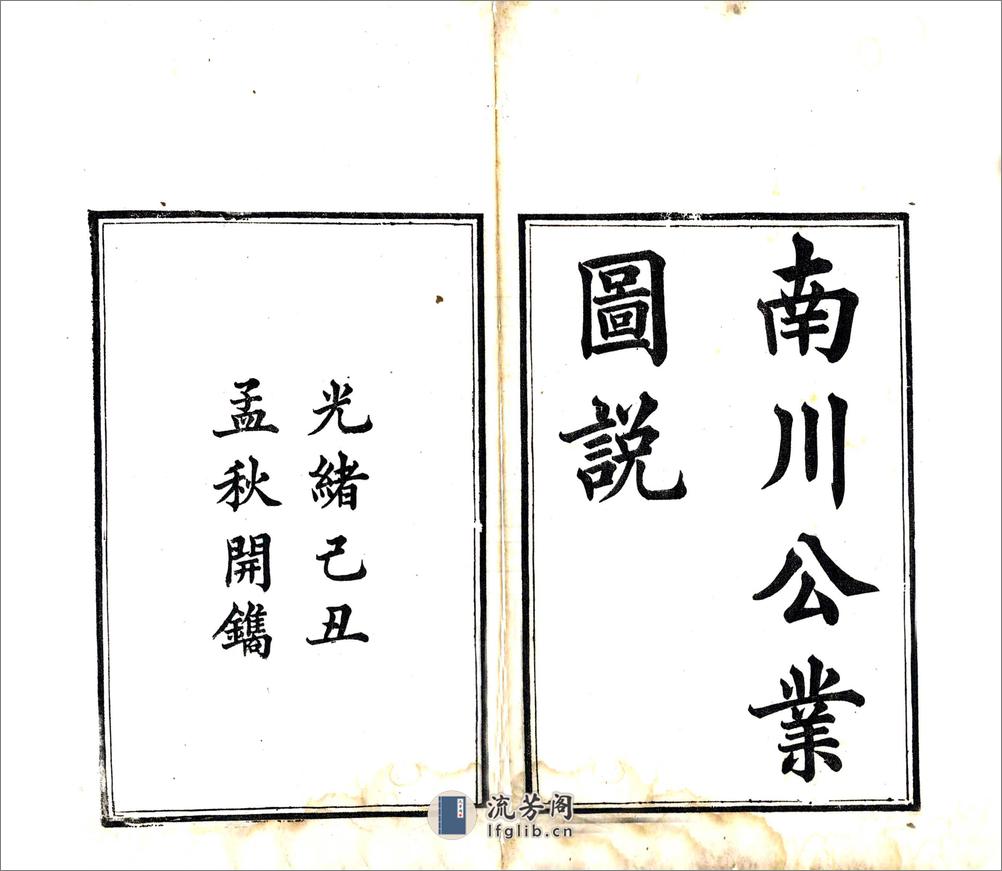 南川公業
圖説
光緒己丑
孟秋開鐫
流芳阁
lfglib.cn